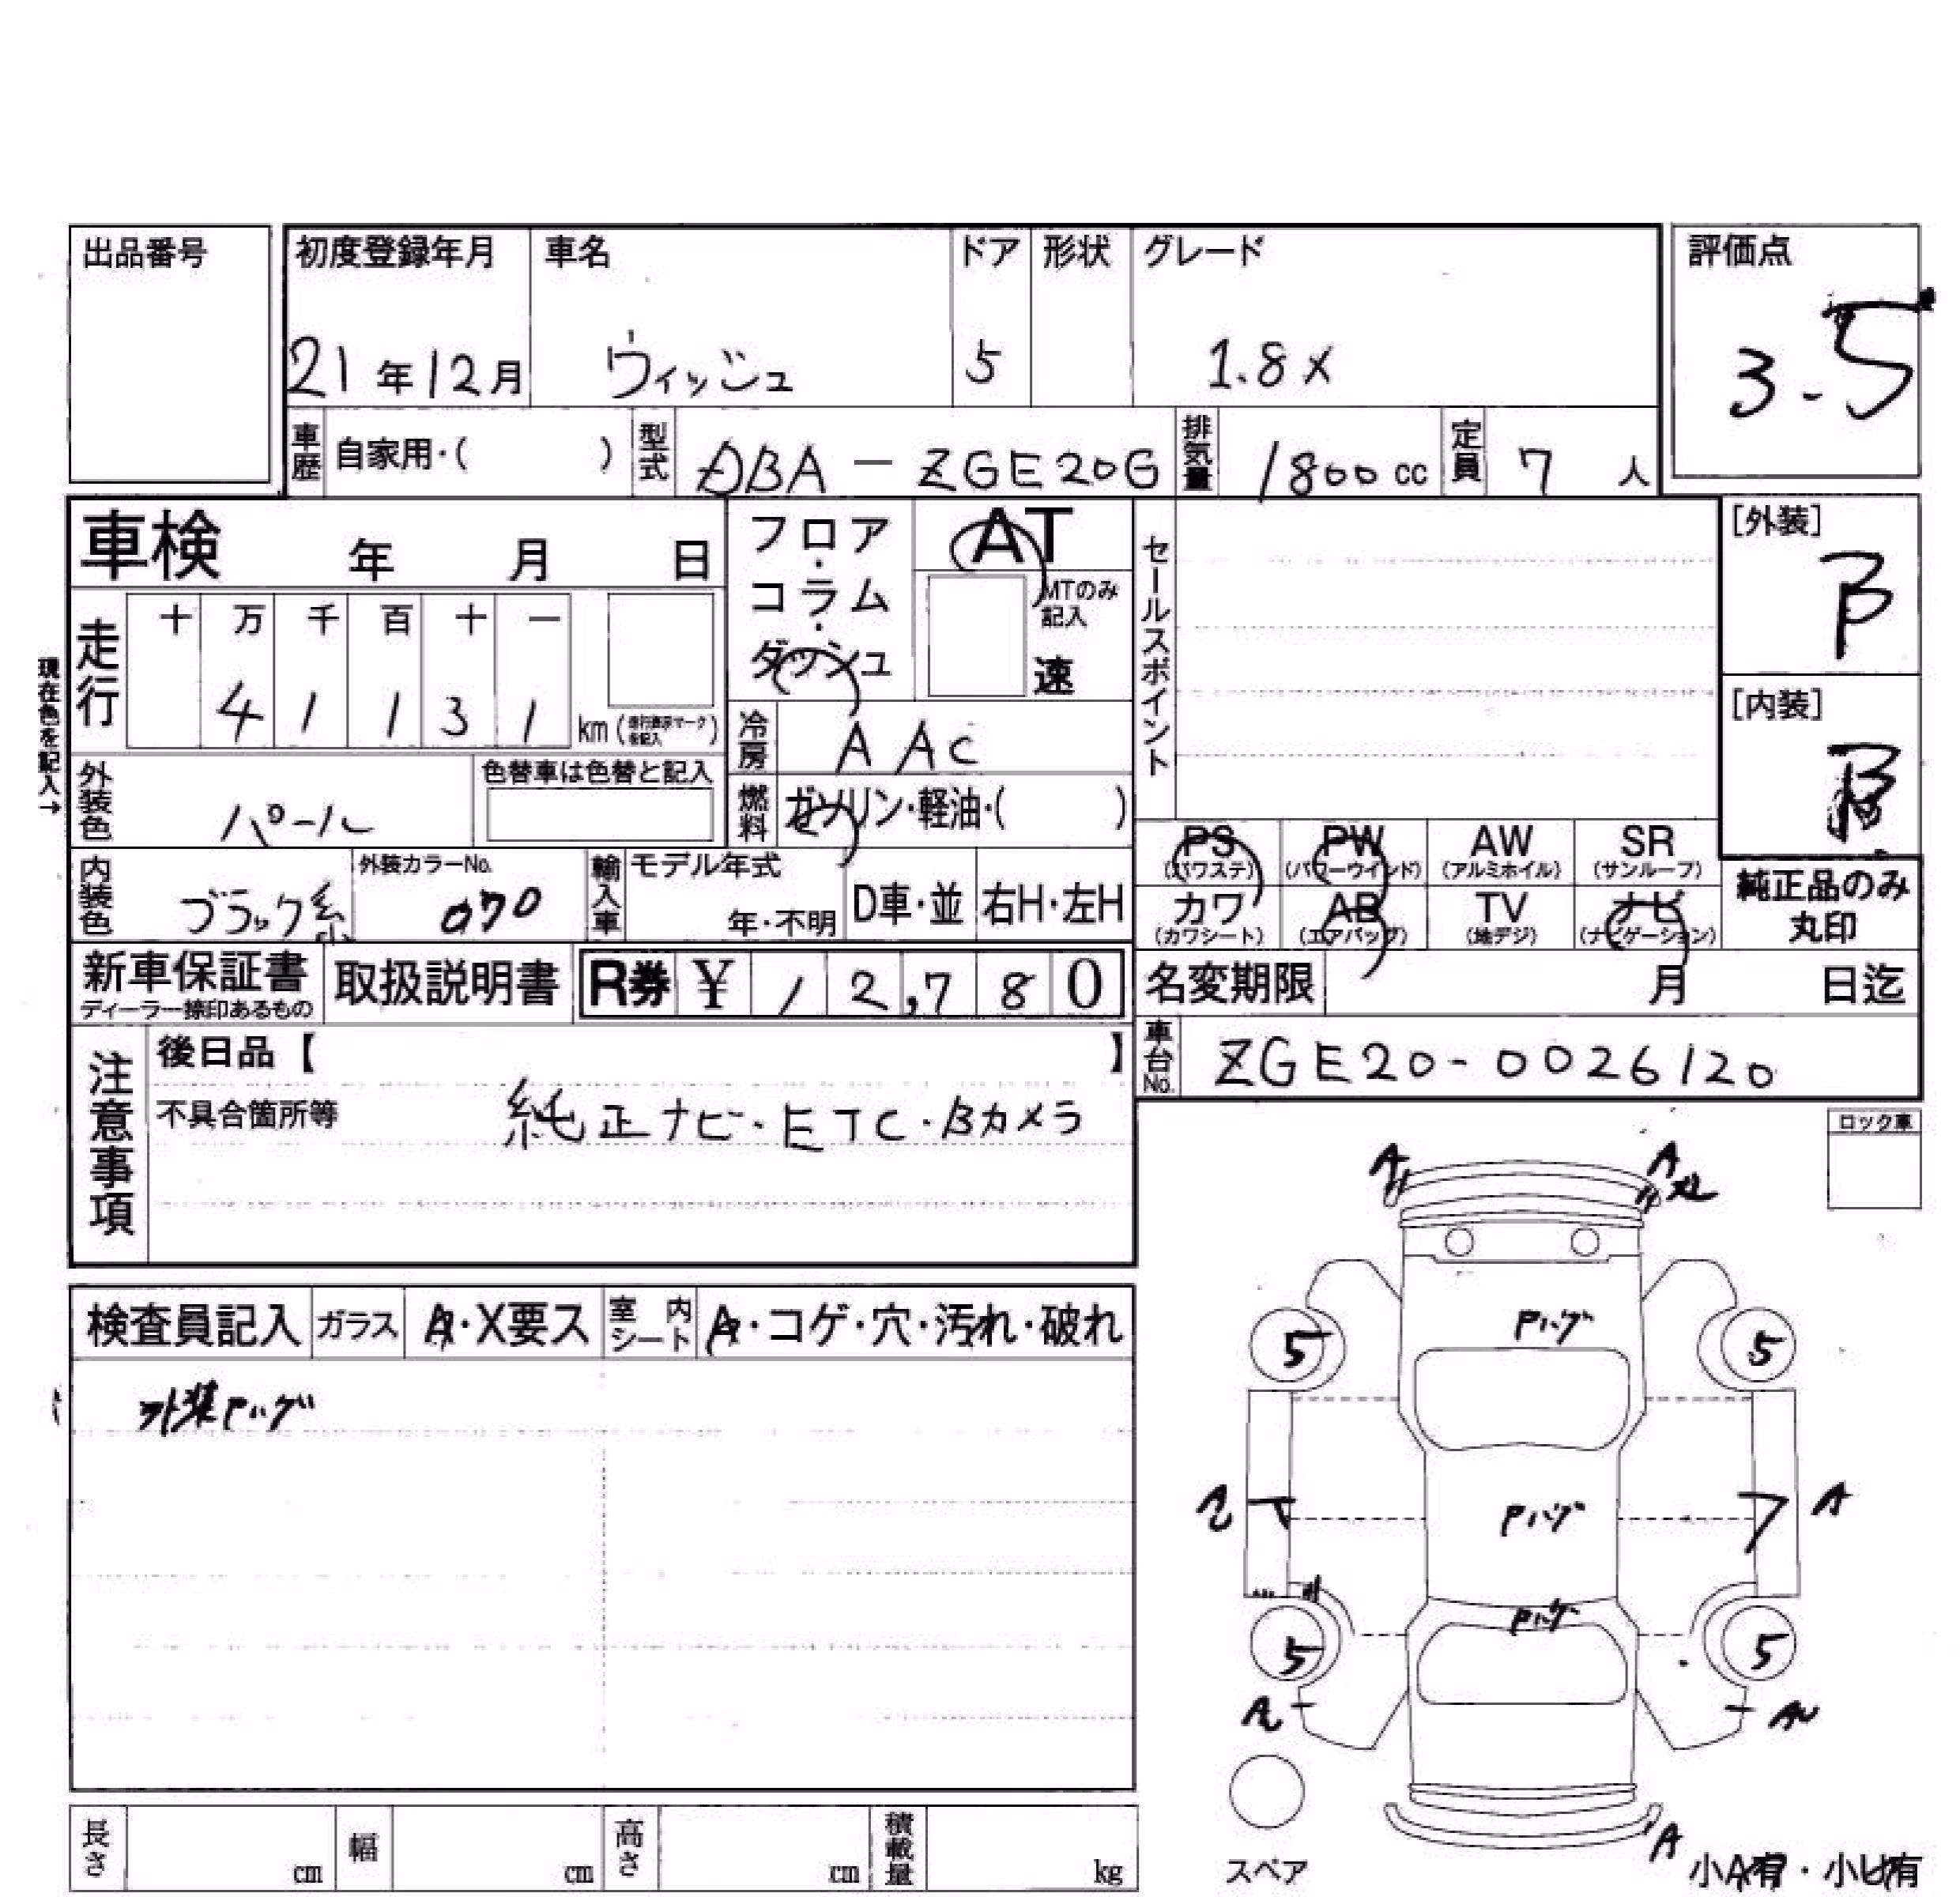 出品番号
初度登録年月 車名 ドア 形状 グレード 評価点
21年12月 ウィッシュ 5 1.8X 3.5
車歴 自家用・( ) 型式 DBA-ZGE20G 排気量 1800cc 定員 7人
車検 年 月 日
フロア・コラム・ダッシュ
AT
MTのみ記入
速
セールスポイント
[外装]
B
[内装]
B
現在色を記入→
走行 十 万 千 百 十 一
4 1 1 3 1 km
冷房 AAC
外装色 パール 色替車は色替と記入
燃料 ガソリン・軽油・( )
PS (パワステ) PW (パワーウインド) AW (アルミホイル) SR (サンルーフ)
カワ (カワシート) AB (エアバッグ) TV (地デジ) ナビ (ナビゲーション)
純正品のみ丸印
内装色 ブラック系 外装カラーNo. 070 輸入車 モデル年式 年・不明 D車・並 右H・左H
新車保証書 ディーラー捺印あるもの 取扱説明書 R券 ¥12,780
名変期限 月 日迄
車台No. ZGE20-0026120
注意事項
後日品【 】
不具合箇所等 純正ナビ・ETC・Bカメラ
ロック車
検査員記入 ガラス A・X要ス 室内シート A・コゲ・穴・汚れ・破れ
外装Pハゲ
A A
Pハゲ
5 5
Pハゲ
A
Pハゲ
5 5
A
スペア
小A有・小U有
長さ cm 幅 cm 高さ cm 積載量 kg